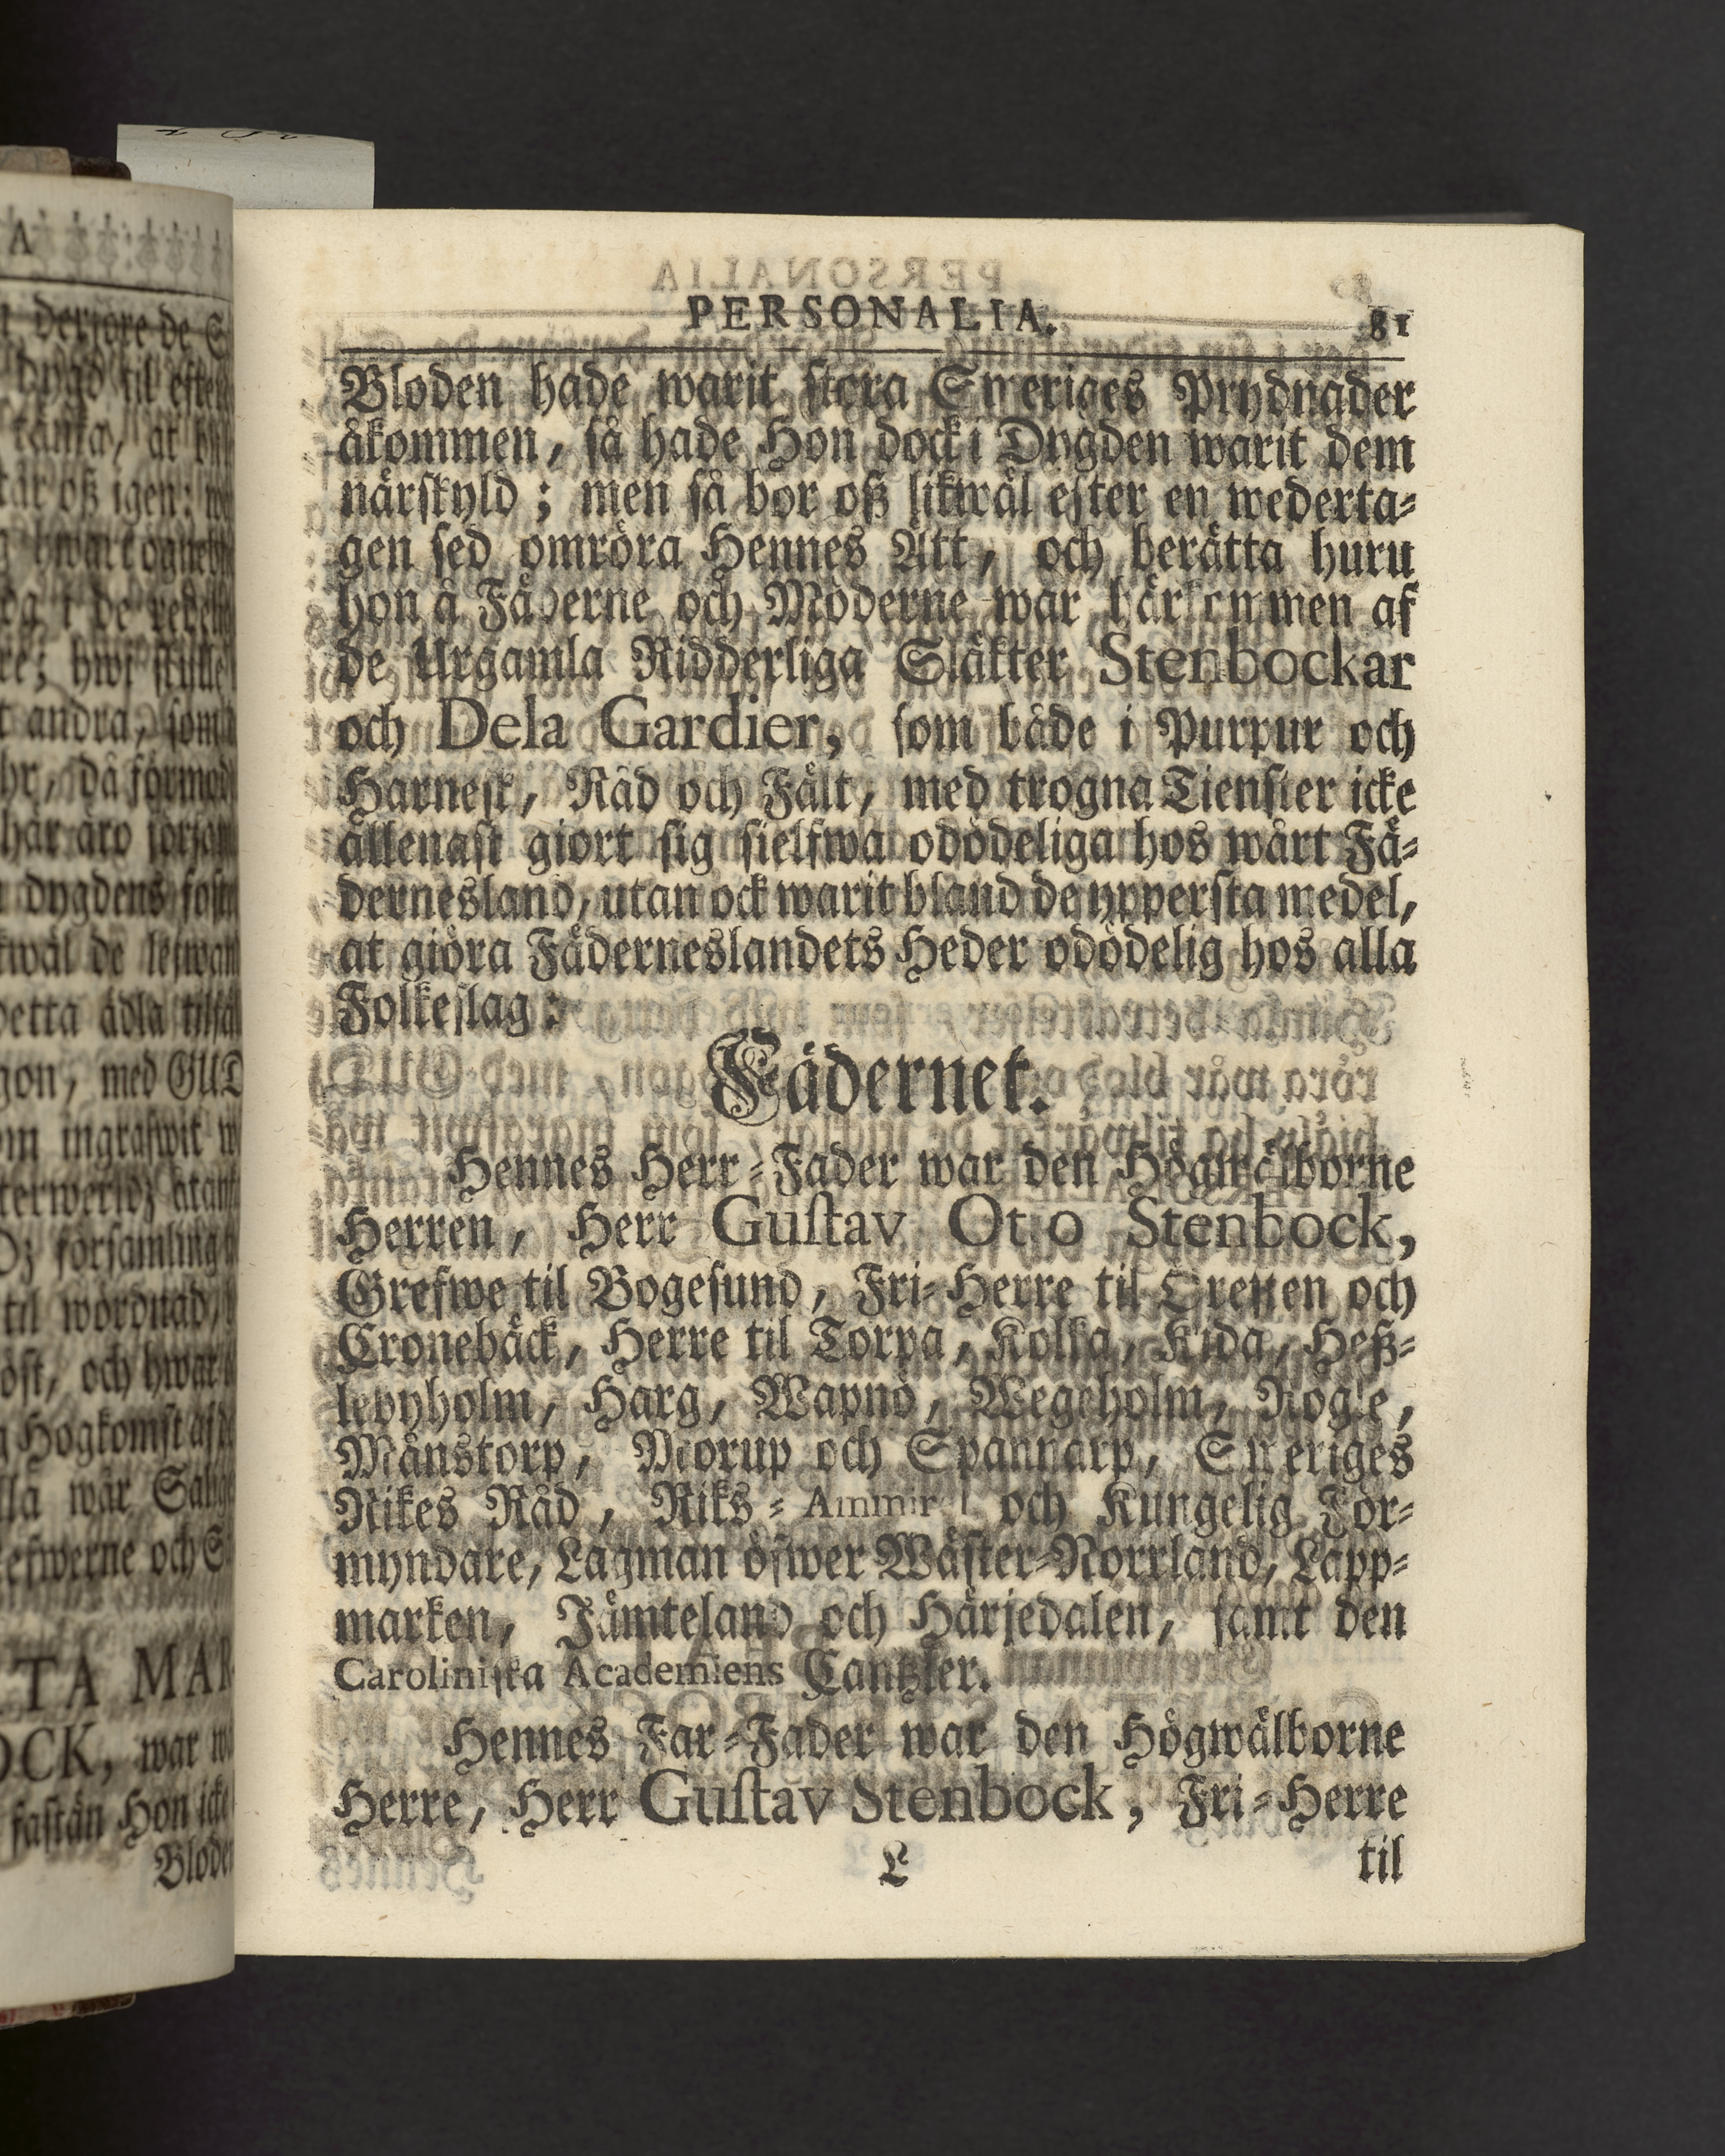 PERSONALIA. 81
Bloden hade warit stora Sweriges Prydnader
åkommen, så hade Hon dock i Dygden warit dem
närskyld; men så bör oß likwäl efter en wederta-
gen sed omröra Hennes Ätt, och berätta huru
hon å Fäderne och Möderne war härkommen af
de Urgamla Ridderliga Släkter Stenbockar
och Dela Gardier, som både i Purpur och
Harnesk, Råd och Fält, med trogna Tienster icke
allenast giort sig sielfwa odödeliga hos wårt Fä-
dernesland, utan ock warit bland de yppersta medel,
at giöra Fäderneslandets Heder odödelig hos alla
Folkeslag:
Fädernet.
Hennes Herr-Fader war den Högwälborne
Herren, Herr Gustav Otto Stenbock,
Grefwe til Bogesund, Fri-Herre til Cresten och
Cronebäck, Herre til Torpa, Kolka, Kida, Heß-
lebyholm, Harg, Wapnö, Wegeholm, Rögle,
Månstorp, Morup och Spannarp, Sweriges
Rikes Råd, Riks-Ammiral och Kungelig For-
myndare, Lagman öfwer Wäster-Norrland, Lapp-
marken, Jämteland och Härjedalen, samt den
Caroliniska Academiens Cantzler.
Hennes Far-Fader war den Högwälborne
Herre, Herr Gustav Stenbock, Fri-Herre
L til